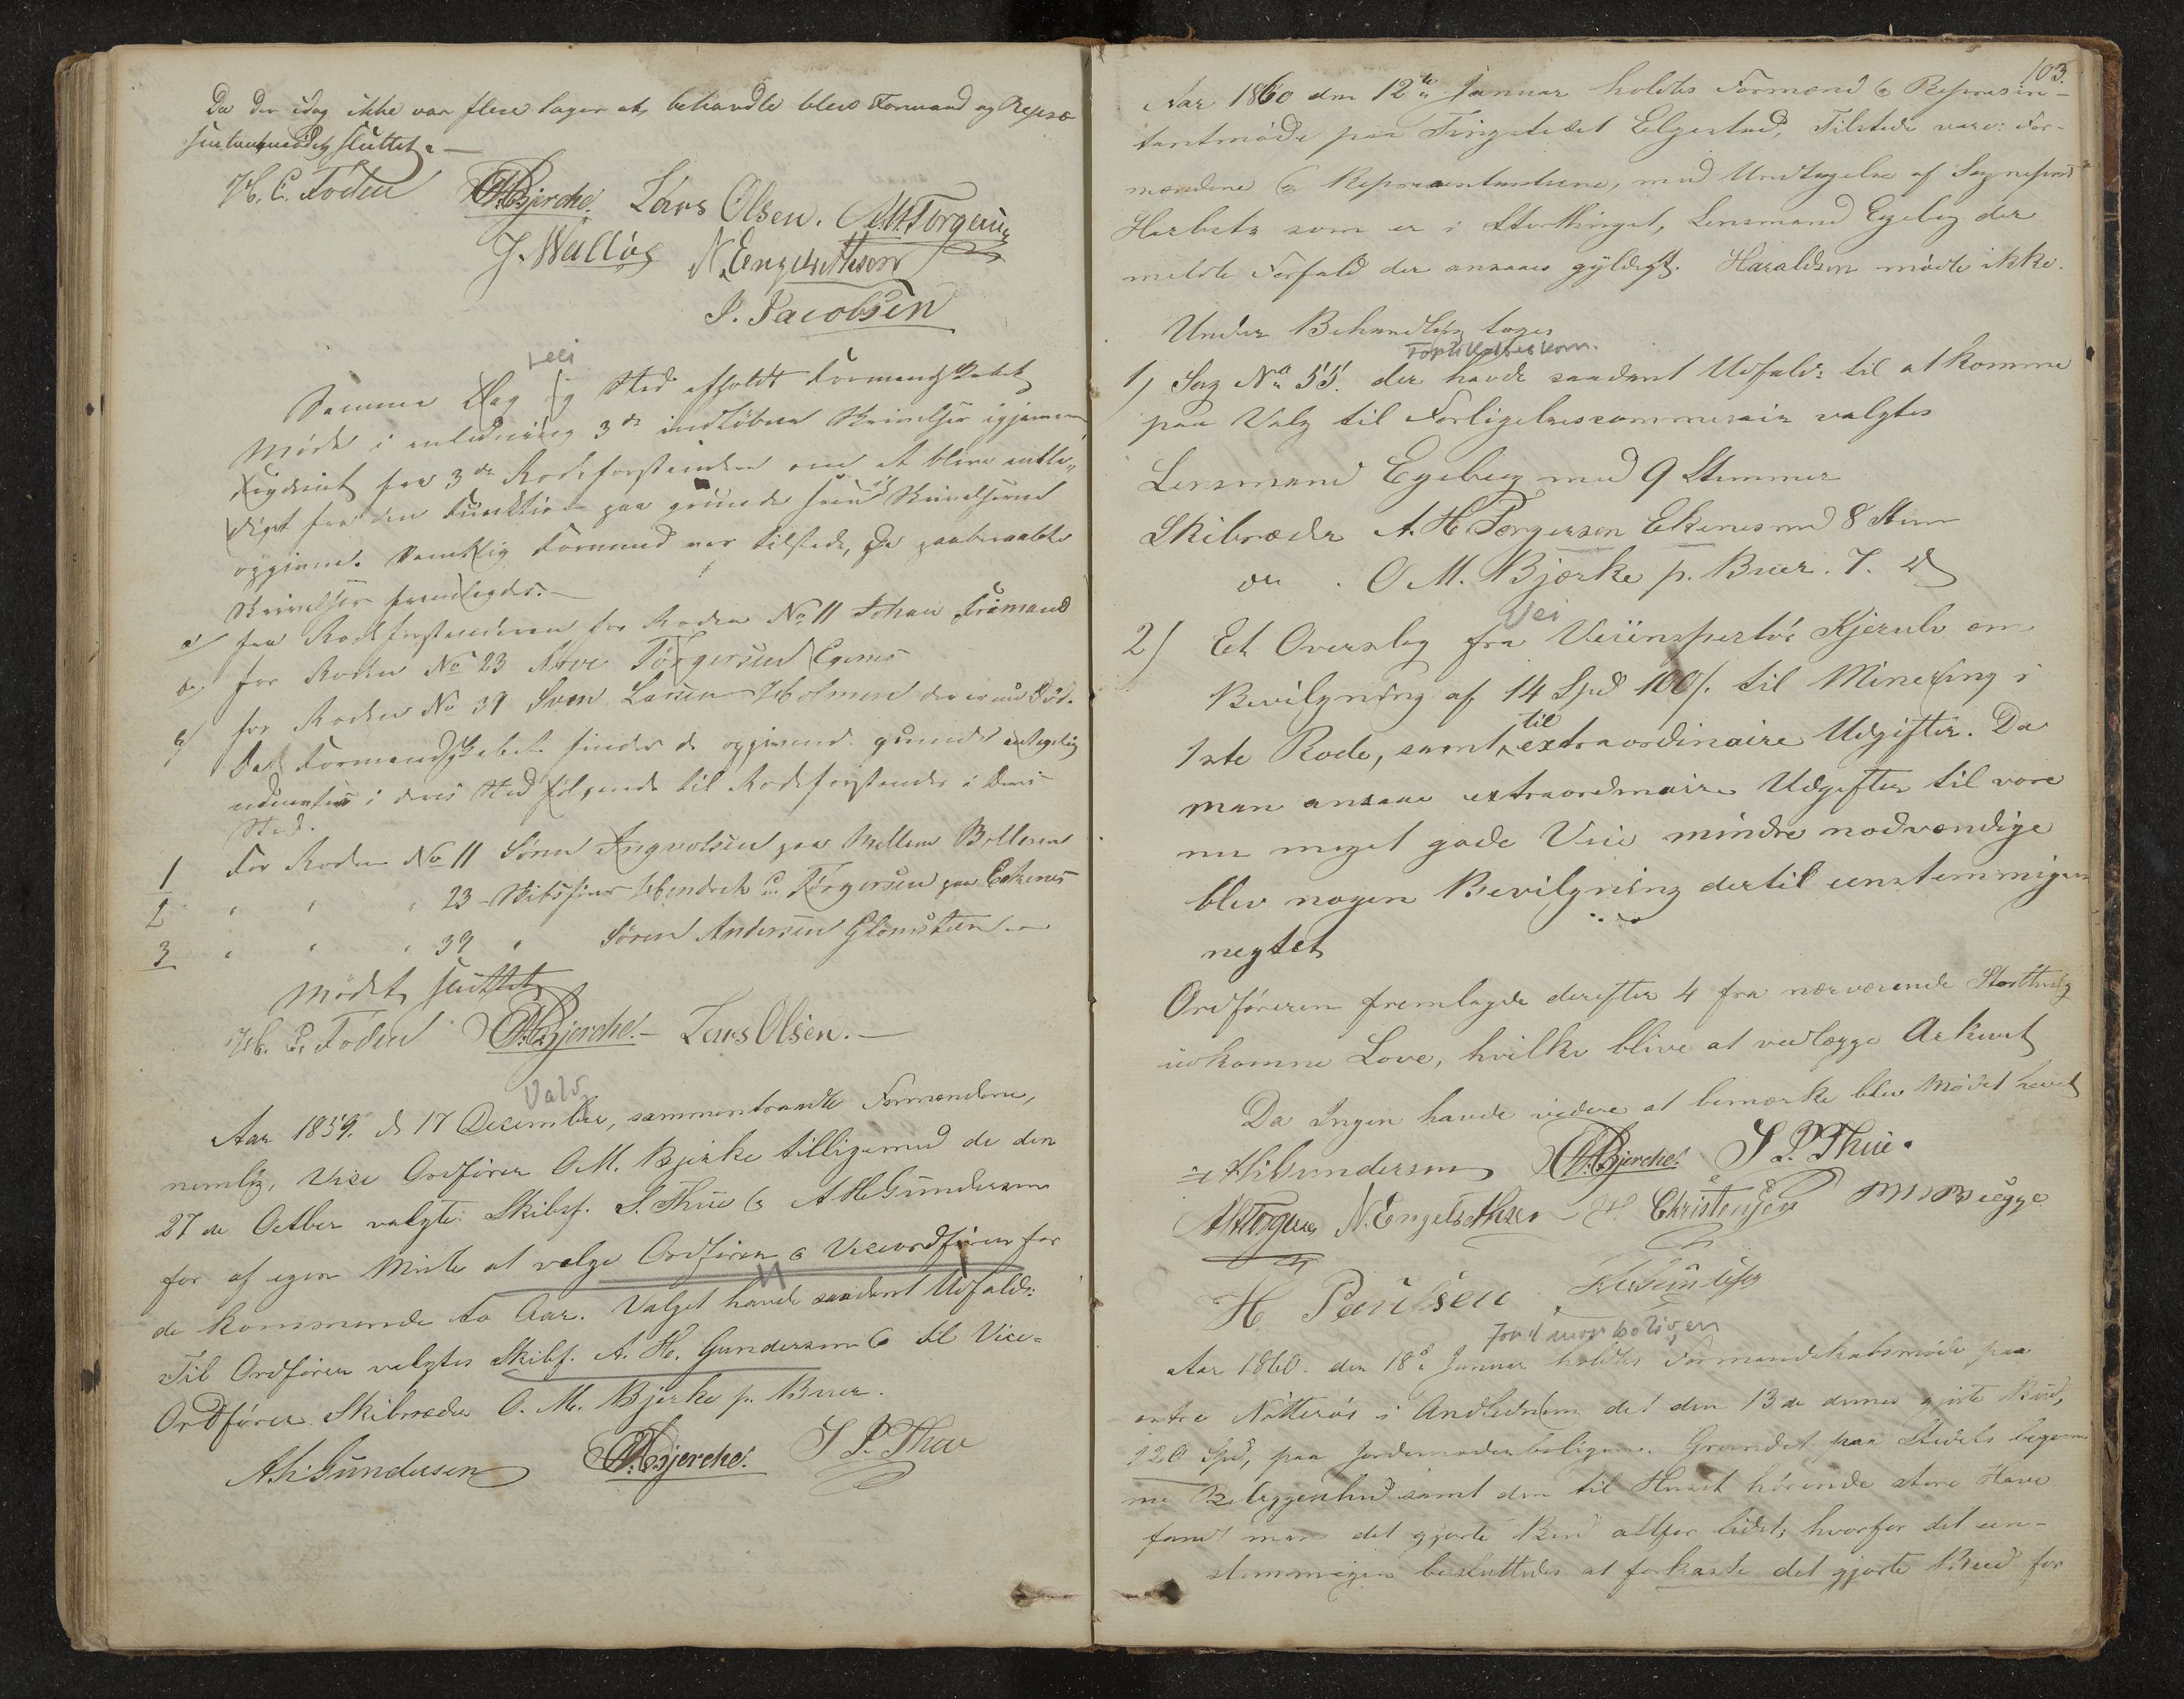 Da der idag ikke var flere sager at behandle blev Formand og Repræ-
sentantmødet sluttet.-
H. C. Foden OMBjerche. Lars Olsen. AHTorgersen
J. Walløe N. Engebrethsen
I. Jacobsen
Veei
Samme Dag og Sted afholdt Formandskabet
Møde i anledning 3de indløbne Skrivelser igjennem
fra 3de Rodeforstandere om at blive entle-
diget fra den Funktion paa grunde som i Skrivelserne
opgivne. Samtlig Formænd var tilstede, De paaberaabte
Skrivelser fremlagdes.-
a/ fra Rodeforstanderen for Roden No 11 Johan
b/ for Roden No 23 Torgersen Egenes
c/ for Roden No 39 Larsen Holmen der er ved Død.
Da Formandskabet finder de opgivne grunde antagelig
udnævntes i deres Sted følgende til Rodeforstander i Deres
Sted.
1 For Roden No 11 Søren Ingvolsen paa Mellem Bolleren
2 " " " 23 - Skibsfører Hendrik C. Torgersen paa Eckenes
3 " " " 39 " Søren Andersen Glomsteen
Mødet sluttet
H. C. Foden OMBjerche.- Lars Olsen.-
Valg
Aar 1859. d 17 Desember, sammentraadte Formændene,
nemlig, Vice Ordfører O M. Bjerke tilligemed de den
27 de Octber valgte Skibsf. S. Thue & A H Gundersen
for af egen Midte at vælge Ordfører & Viceordfører for
de kommende to Aar. Valget havde saadant Udfald:
Til Ordfører valgtes Skibsf. A. H. Gundersen & til Vice-
Ordfører Skibsreder O. M. Bjerke p. Buer.
AHGundersen OMBjerche. S P. Thue
103.
Aar 1860 den 12te Januar holdtes Formænd & Represen-
tantmøde paa Tingstedet Elgestad, Tilstede vare: For-
mændene & Repræsentanterne, med Undtagelse af Sogneprest
Herbets som er i Storthinget, Lensmand Egeberg der
meldte Forfald der ansaaes gyldigt. Haraldsen mødte ikke.
Under Behandling toges
Forlikelseskom.
1/ Sag No 55. der havde saadant Udfald: til at komme
paa Valg til Forligelsescommisair valgtes
Lensmand Egeberg med 9 Stemmer
Skibsreder A. H. Torgersen Ekenes med 8 Stem
do . O M. Bjerke p. Buer . 7. d
Vei
2/ Et Overslag fra Veiinspektør Kjerulv om
Bevilgning af 14 Spd 100/. til Minering i
1ste Rode, samt til extraordinaire Udgifter. Da
man ansaae extraordinaire Udgifter til vore
nu meget gode Veie mindre nødvendige
blev nogen Bevilgning dertil eenstemmigen
negtet
Ordføreren fremlagde derefter 4 fra nærværende Storthing
udkomne Love, hvilke blive at vedlægge Arkivet
Da Ingen havde videre at bemærke blev Mødet hævet
AHGundersen OMBjerche. S P. Thue.
AHTorgersen N. Engebrethsen H. Christensen M Brügge
H Paulsen
Jordmorboligen
Aar 1860. den 18de Januar holdtes Formandskabsmøde paa
østre Nøtterøe i Andledning det den 13 de dennes gjorte Bud,
120 Spd, paa Jordemoderboligen. Grundet paa Stedets
Beliggenhed samt den til Huset hørende store Have
fandt man det gjorte Bud altfor lidet; hvorfor det een-
stemmigen besluttedes at forkaste det gjorte Bud for